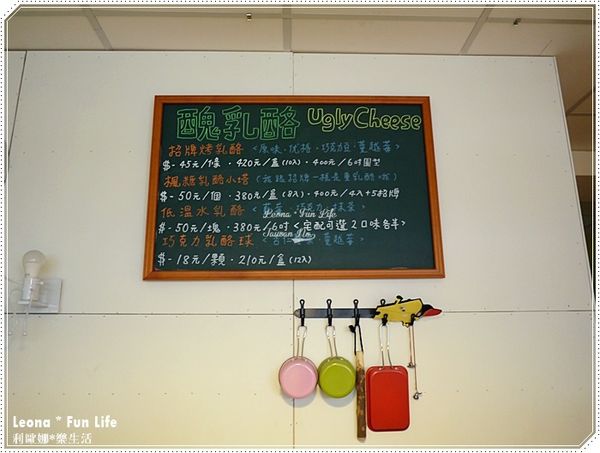 醜乳酪 Ugly Cheese
招牌烤乳酪 <原味·优格·巧克力豆·蔓越莓>
$- 45元/條·420元/盒(10入)·400元/6吋圓型
楓糖乳酪小塔 (我跟招牌一樣是重乳酪啦)
$- 50元/個·380元/盒(8入)·400元/4入+5招牌
低溫水乳酪 <巧克力·抹茶>
$- 50元/塊·380元/6吋<宅配可選2口味各半>
巧克力乳酪球 <杏仁 蔓越莓>
$- 18元/顆·210元/盒(12入)
Leona * Fun Life
Taiwan Itn
Leona * Fun Life
利歐娜*樂生活